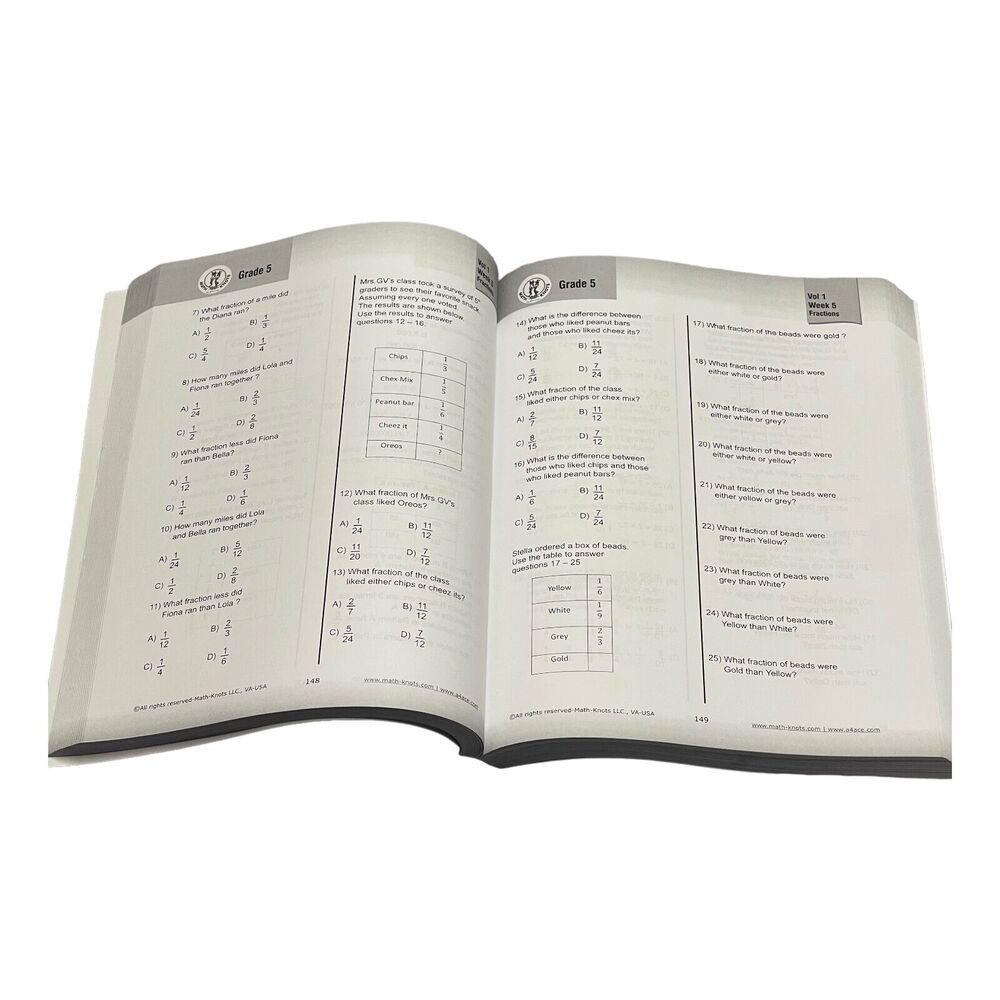 Grade 5
7) What fraction of a mile did
the Diana ran?
A) 1/2 B) 1/3
C) 5/4 D) 1/4
8) How many miles did Lola and
Fiona ran together ?
A) 1/24 B) 2/3
C) 1/2 D) 2/8
9) What fraction less did Fiona
ran than Bella?
A) 1/12 B) 2/3
C) 1/4 D) 1/6
10) How many miles did Lola
and Bella ran together?
A) 1/24 B) 5/12
C) 1/2 D) 2/8
11) What fraction less did
Fiona ran than Lola ?
A) 1/12 B) 2/3
C) 1/4 D) 1/6
Vol 1
Week 5
Mrs.GV's class took a survey of 5th
graders to see their favorite snack.
Assuming every one voted.
The results are shown below.
Use the results to answer
questions 12 – 16.
Chips 1/3
Chex Mix 1/5
Peanut bar 1/6
Cheez it 1/4
Oreos ?
12) What fraction of Mrs.GV's
class liked Oreos?
A) 1/24 B) 11/12
C) 11/20 D) 7/12
13) What fraction of the class
liked either chips or cheez its?
A) 2/7 B) 11/12
C) 5/24 D) 7/12
©All rights reserved-Math-Knots LLC., VA-USA
148
www.math-knots.com | www.a4ace.com
Grade 5
Vol 1
Week 5
Fractions
14) What is the difference between
those who liked peanut bars
and those who liked cheez its?
A) 1/12 B) 11/24
C) 5/24 D) 7/24
15) What fraction of the class
liked either chips or chex mix?
A) 2/7 B) 11/12
C) 8/15 D) 7/12
16) What is the difference between
those who liked chips and those
who liked peanut bars?
A) 1/6 B) 11/24
C) 5/24 D) 7/24
Stella ordered a box of beads.
Use the table to answer
questions 17 – 25
Yellow 1/6
White 1/9
Grey 2/3
Gold
17) What fraction of the beads were gold ?
18) What fraction of the beads were
either white or gold?
19) What fraction of the beads were
either white or grey?
20) What fraction of the beads were
either white or yellow?
21) What fraction of the beads were
either yellow or grey?
22) What fraction of beads were
grey than Yellow?
23) What fraction of beads were
grey than White?
24) What fraction of beads were
Yellow than White?
25) What fraction of beads were
Gold than Yellow?
©All rights reserved-Math-Knots LLC., VA-USA
149
www.math-knots.com | www.a4ace.com